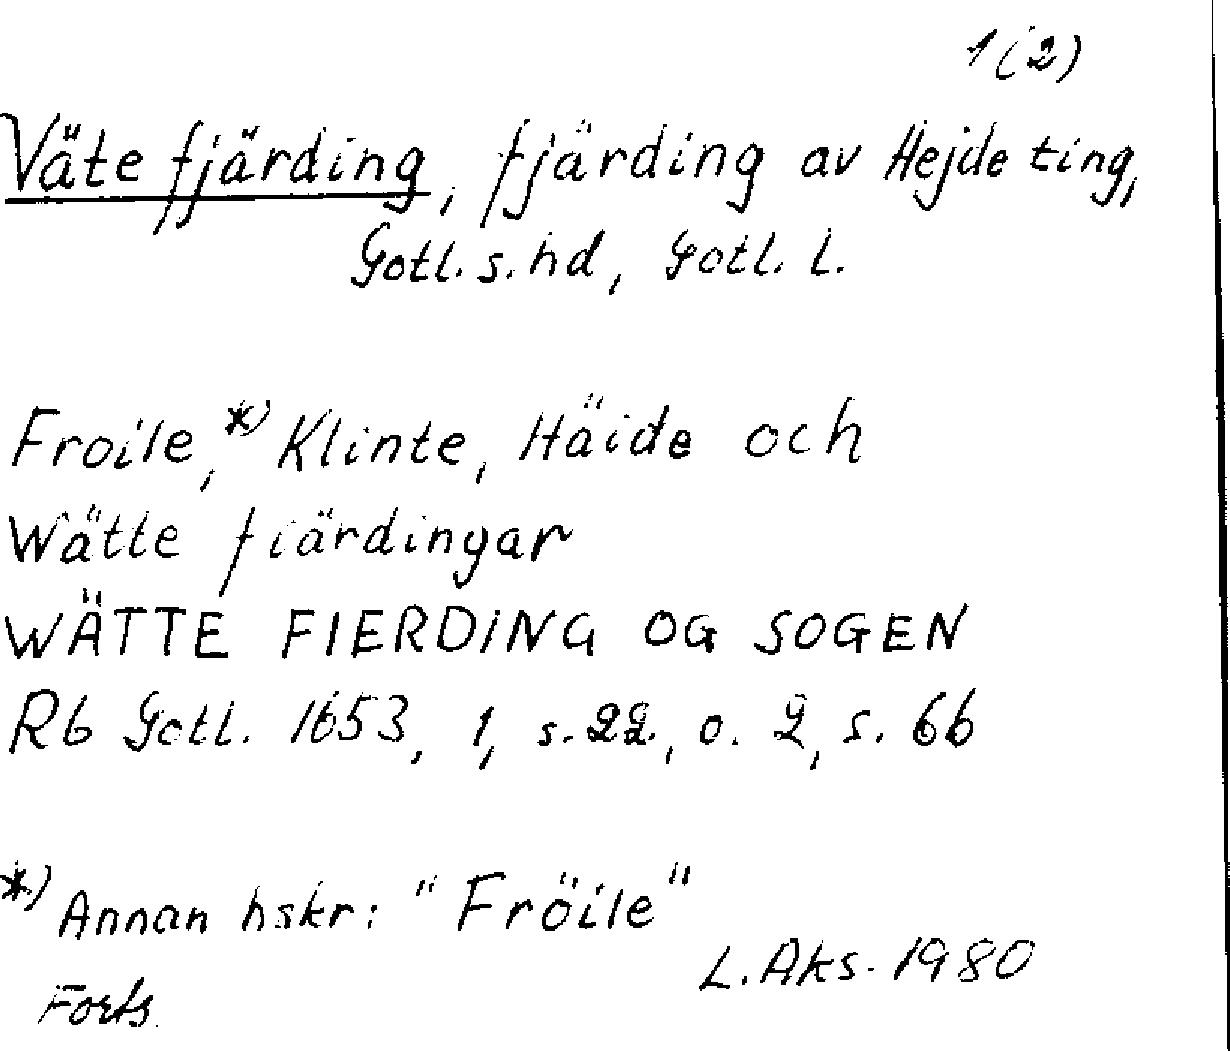 1(2)
Väte fjärding, fjärding av Hejde ting,
Gotl. s. hd, Gotl. l.
Froile,*) Klinte, Häide och
Wätte fiärdingar
WÄTTE FIERDING OG SOGEN
Rb Gotl. 1653, 1, s. 22, o. 2, s. 66
*) Annan hskr: "Fröile"
L. Aks. 1980
Forts.